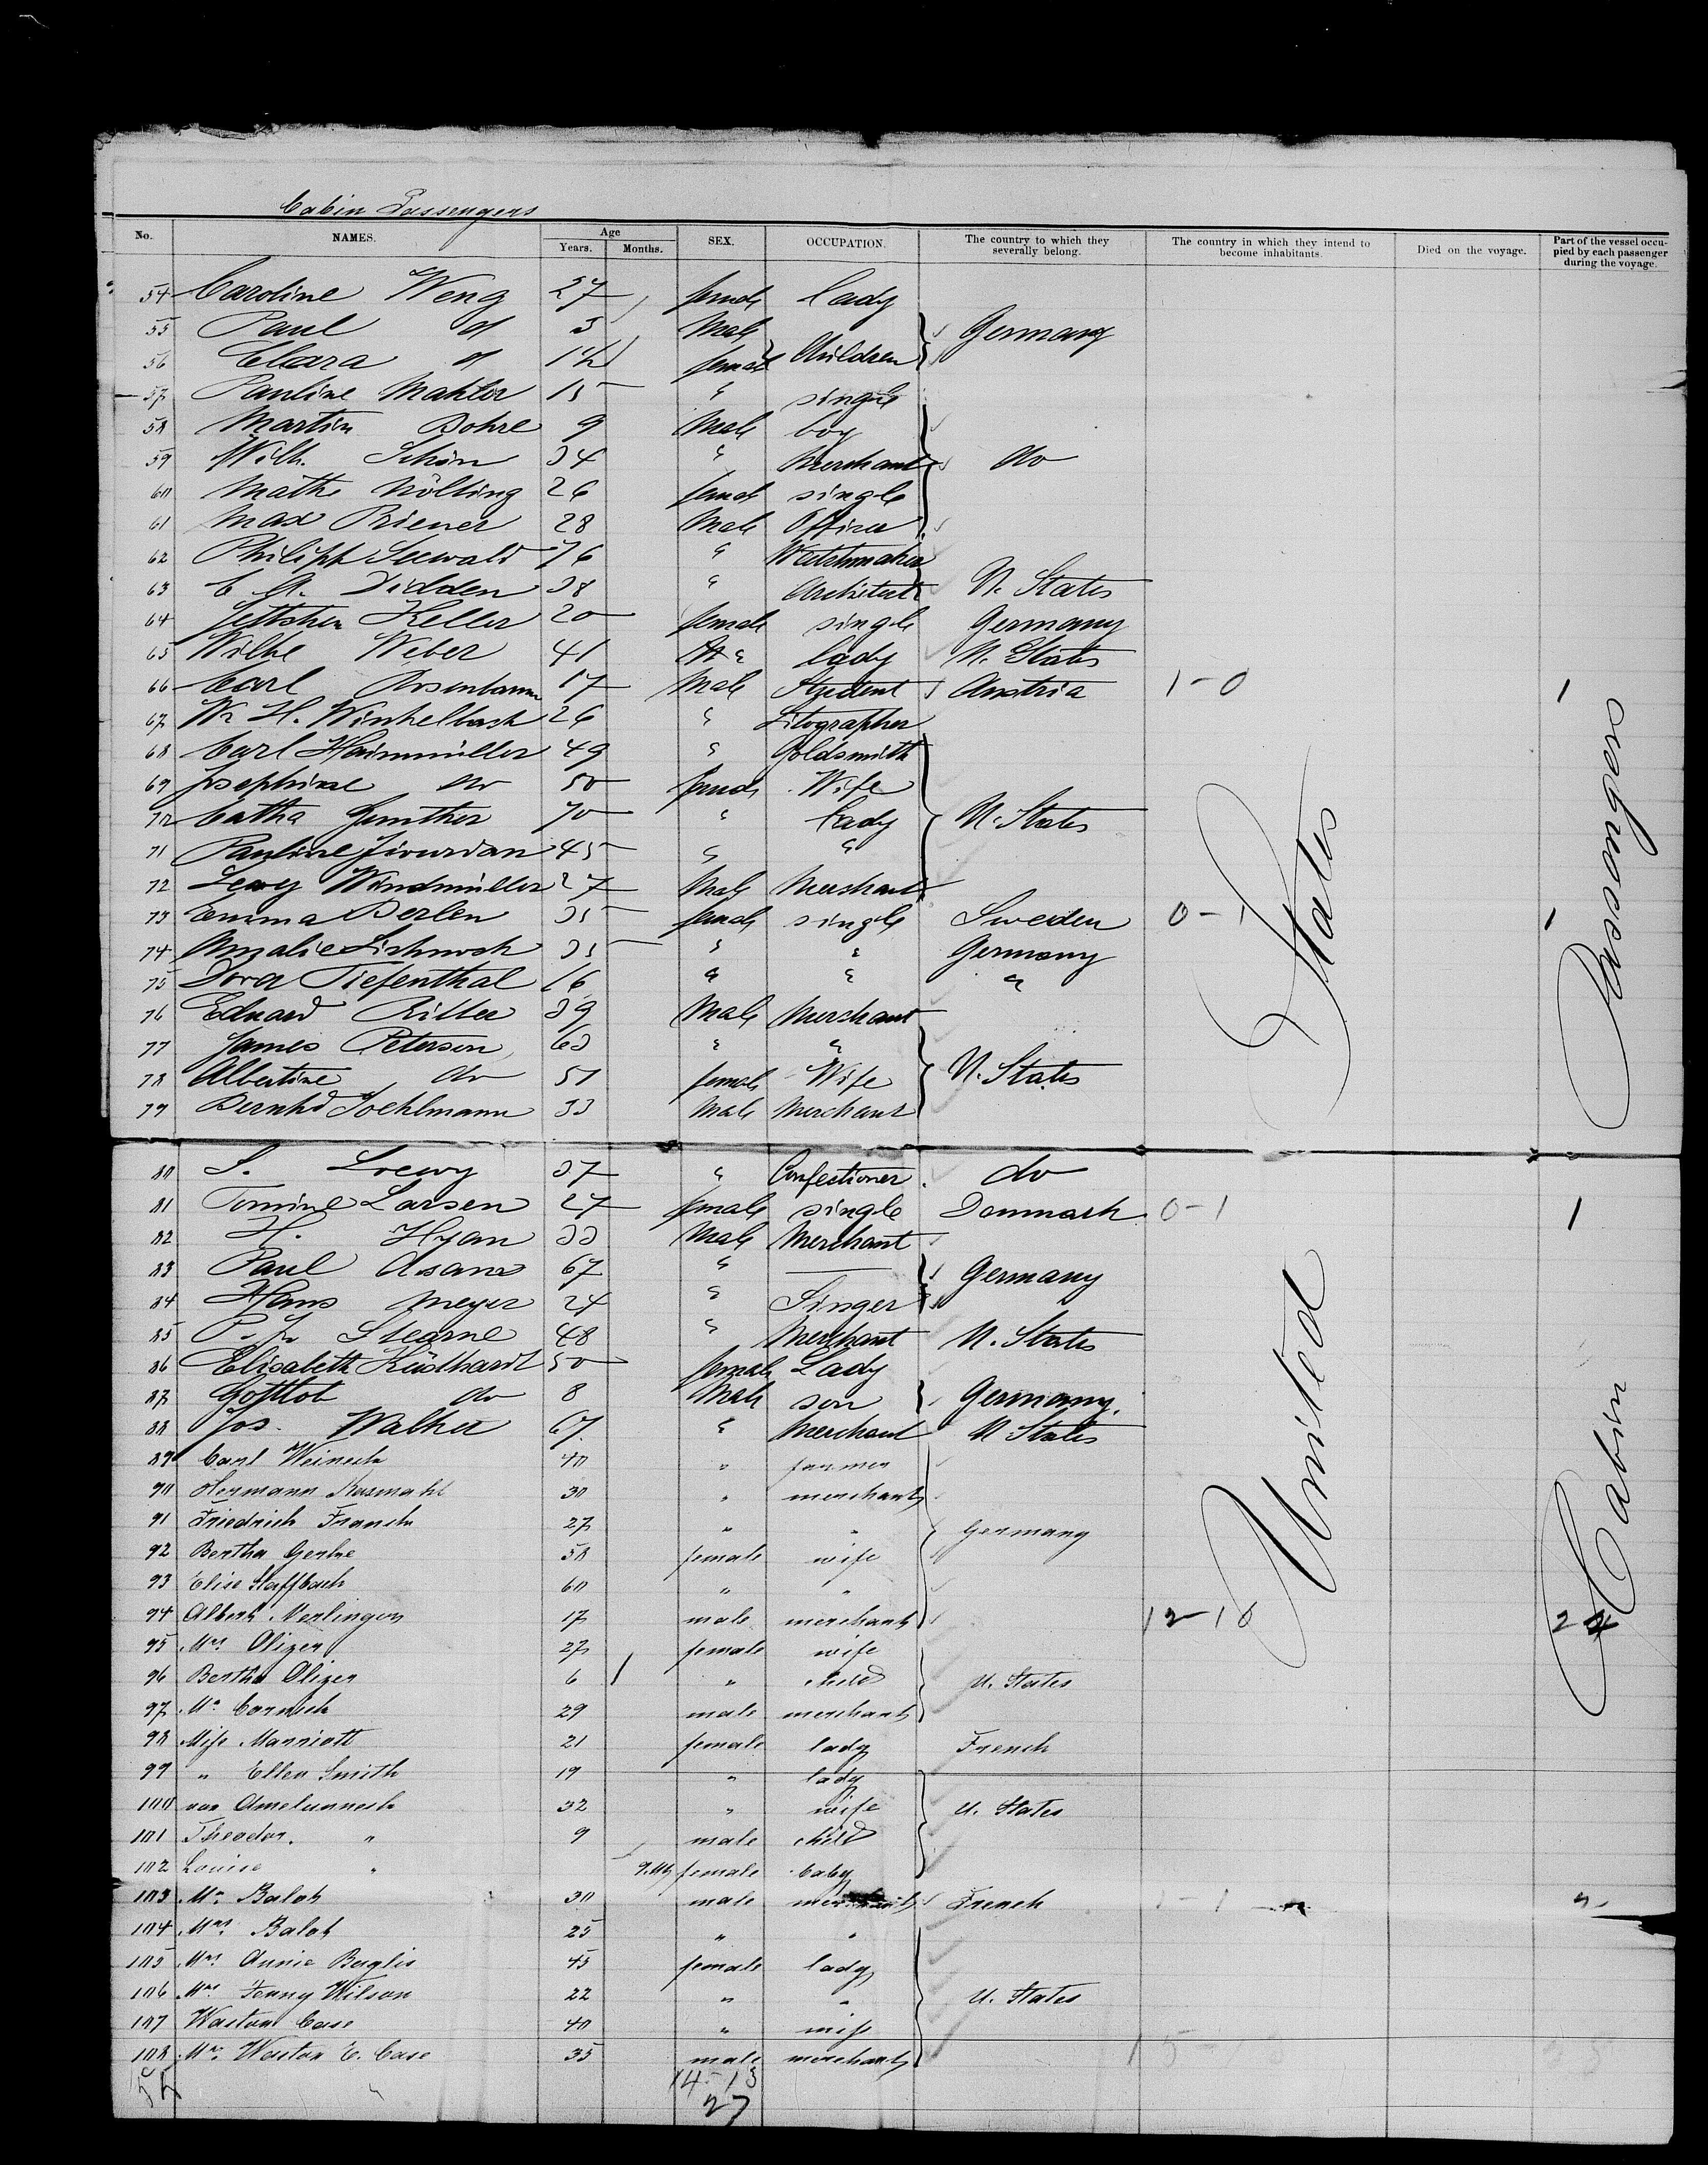 Cabin Passengers
No. NAMES. Age Years. Months. SEX. OCCUPATION. The country to which they severally belong. The country in which they intend to become inhabitants. Died on the voyage. Part of the vessel occupied by each passenger during the voyage.
54 Caroline Weng 27 lady
55 Paul 3 Male Germany
56 Clara Children
57 Pauline Mahler 15 " single
58 Martin Bohre 9 Male boy
59 Wilh. Schön 34 " Merchant do
60 Mathe Nölting 26 single
61 Max Briener 28 Male Officer
62 Philipp Seewald 76 " Watchmaker
63 C. A. Didden 38 " Architect U. States
64 Jettchen Keller 20 female single Germany
65 Wilhe Weber 41 " lady U. States
66 Carl Rosenbaum 17 Male Student Austria 1-0 1
67 Wm H. Winkelbach 26 " Litographer
68 Carl Haimmüller 49 " Goldsmith
69 Josephine do 50 Wife
70 Catha Gunther 70 " Lady U. States
71 Pauline 45 " "
72 Windmüller 27 Male Merchant
73 Emma Berlen 35 single Sweden 0-1 1
74 Amalie 35 " " Germany
75 Dora Tiefenthal 16 " " "
76 Eduard 39 Male Merchant
77 James Peterson 63 " "
78 Albertine do 51 female Wife U. States
79 Bernhd 33 Male Merchant
80 S. Loewy 37 " Confectioner do
81 Tomine Larsen 27 female single Denmark 0-1 1
82 H. Hyan 33 Male Merchant
83 Paul 67 " — Germany
84 Hans Meyer 24 " Singer
85 Stearne 48 " Merchant U. States
86 Elisabeth 50 female Lady
87 Gottlob do 8 Male son Germany.
88 Jos. Walker 67 " Merchant U States
89 Carl Weineck 40 " farmer
90 Hermann 30 " merchant
91 Friedrich Franck 27 " " Germany
92 Bertha Gerke 58 female wife
93 Elise Staffbach 60 " "
94 Albert Merlinger 17 male merchant 12-10
95 Mrs Olizer 27 female wife
96 Bertha Olizer 6 " child U. States
97 Mr Cornish 29 male merchant
98 Miss Marriott 21 female lady French
99 " Ellen Smith 19 " lady
100 van 32 " wife U. States
101 Theodor. " 9 male child
102 Louise " female baby
103 Mr. Balah 30 male French
104 Mrs Balah 25 " "
105 Mrs Annie 45 female lady
106 Mrs Fanny Wilson 22 " " U. States
107 Waston Case 40 " wife
108 Mr. Waston E. Case 35 male merchant
14-13
27
United States
Cabin Passengers